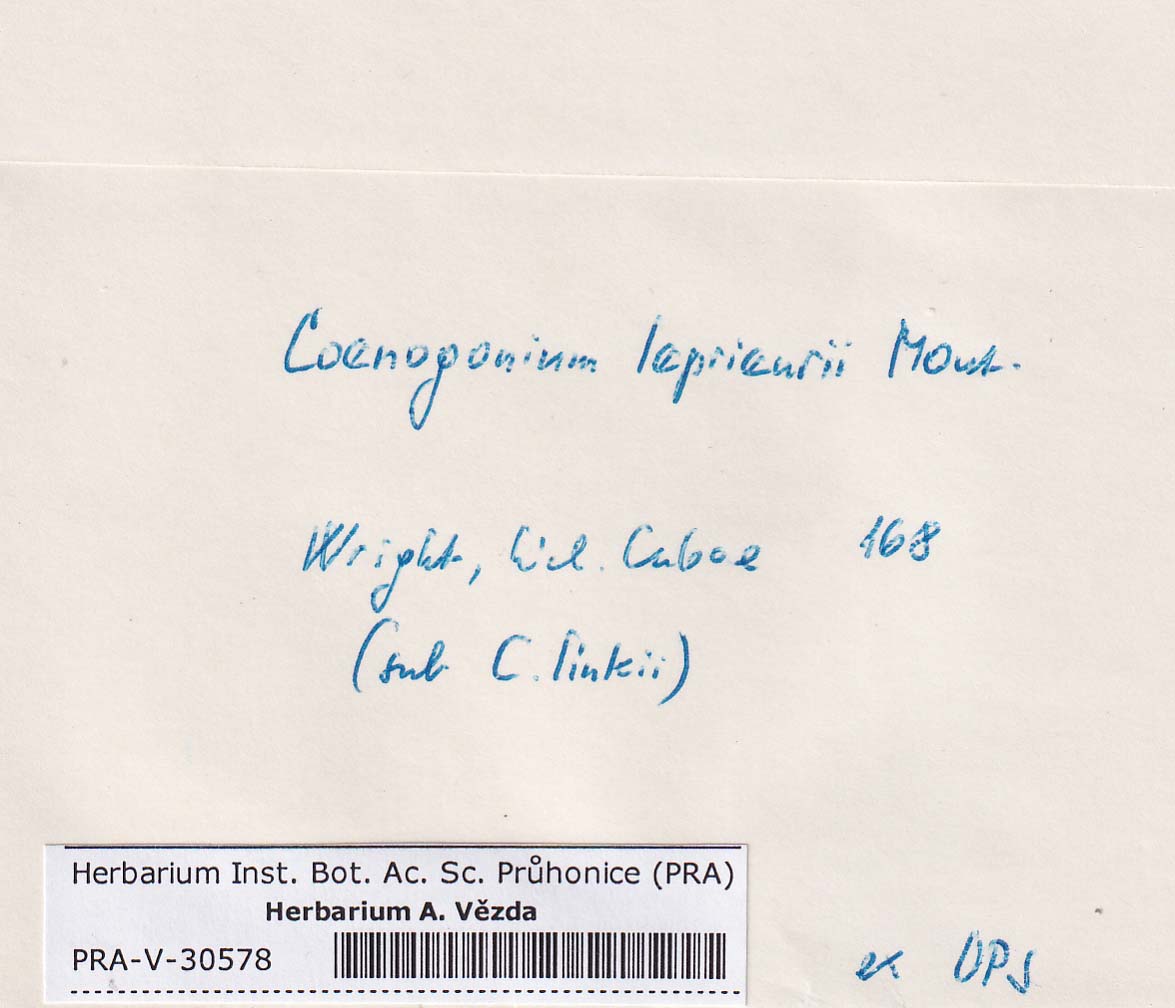 Coenogonium leprieurii Mont.
Wright, Lich. Cubae 168
(sub C. linkii)
Herbarium Inst. Bot. Ac. Sc. Průhonice (PRA)
Herbarium A. Vězda
PRA-V-30578
ex UPS